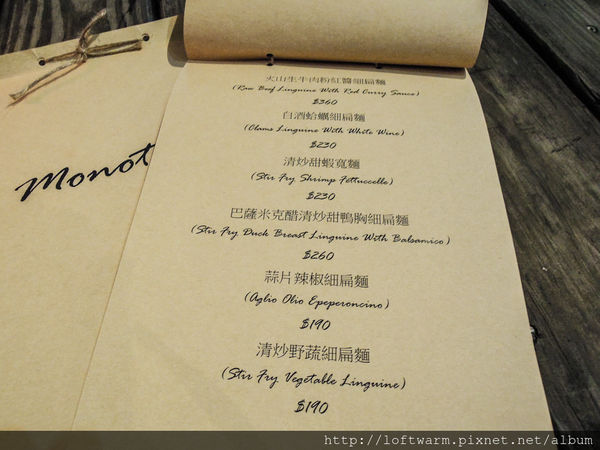 火山生牛肉粉紅醬細扁麵
(Raw Beef Linguine With Red Curry Sauce)
$360
白酒蛤蠣細扁麵
(Clams Linguine With White Wine)
$230
清炒甜蝦寬麵
(Stir Fry Shrimp Fettuccelle)
$230
巴薩米克醋清炒甜鴨胸細扁麵
(Stir Fry Duck Breast Linguine With Balsamico)
$260
蒜片辣椒細扁麵
(Aglio Olio Epeperoncino)
$190
清炒野蔬細扁麵
(Stir Fry Vegetable Linguine)
$190
Monot
http://loftwarm.pixnet.net/album